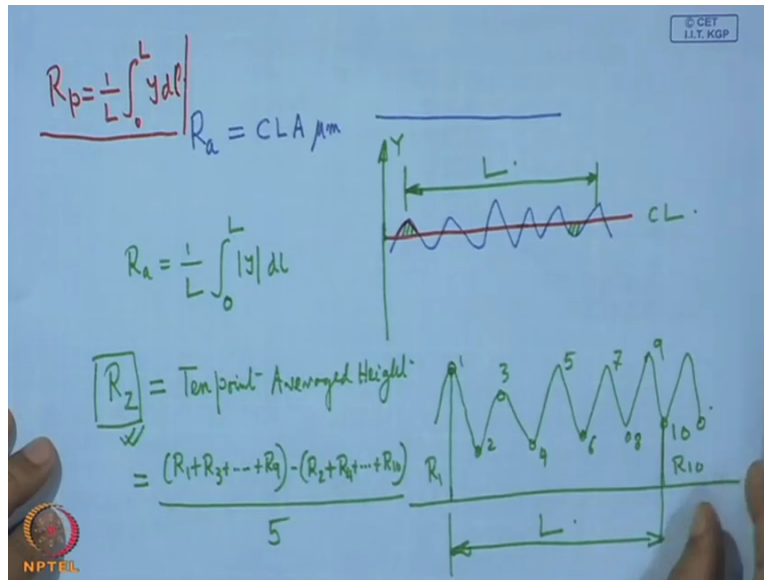 © CET
I.I.T. KGP
Rp = 1/L ∫₀ᴸ y dl
Ra = CLA μm
Y
L.
CL.
Ra = 1/L ∫₀ᴸ |y| dl
Rz = Ten point Averaged Height
= (R1+R3+---+R9)-(R2+R4+---+R10)
5
1 2 3 4 5 6 7 8 9 10
R1 R10
L.
NPTEL